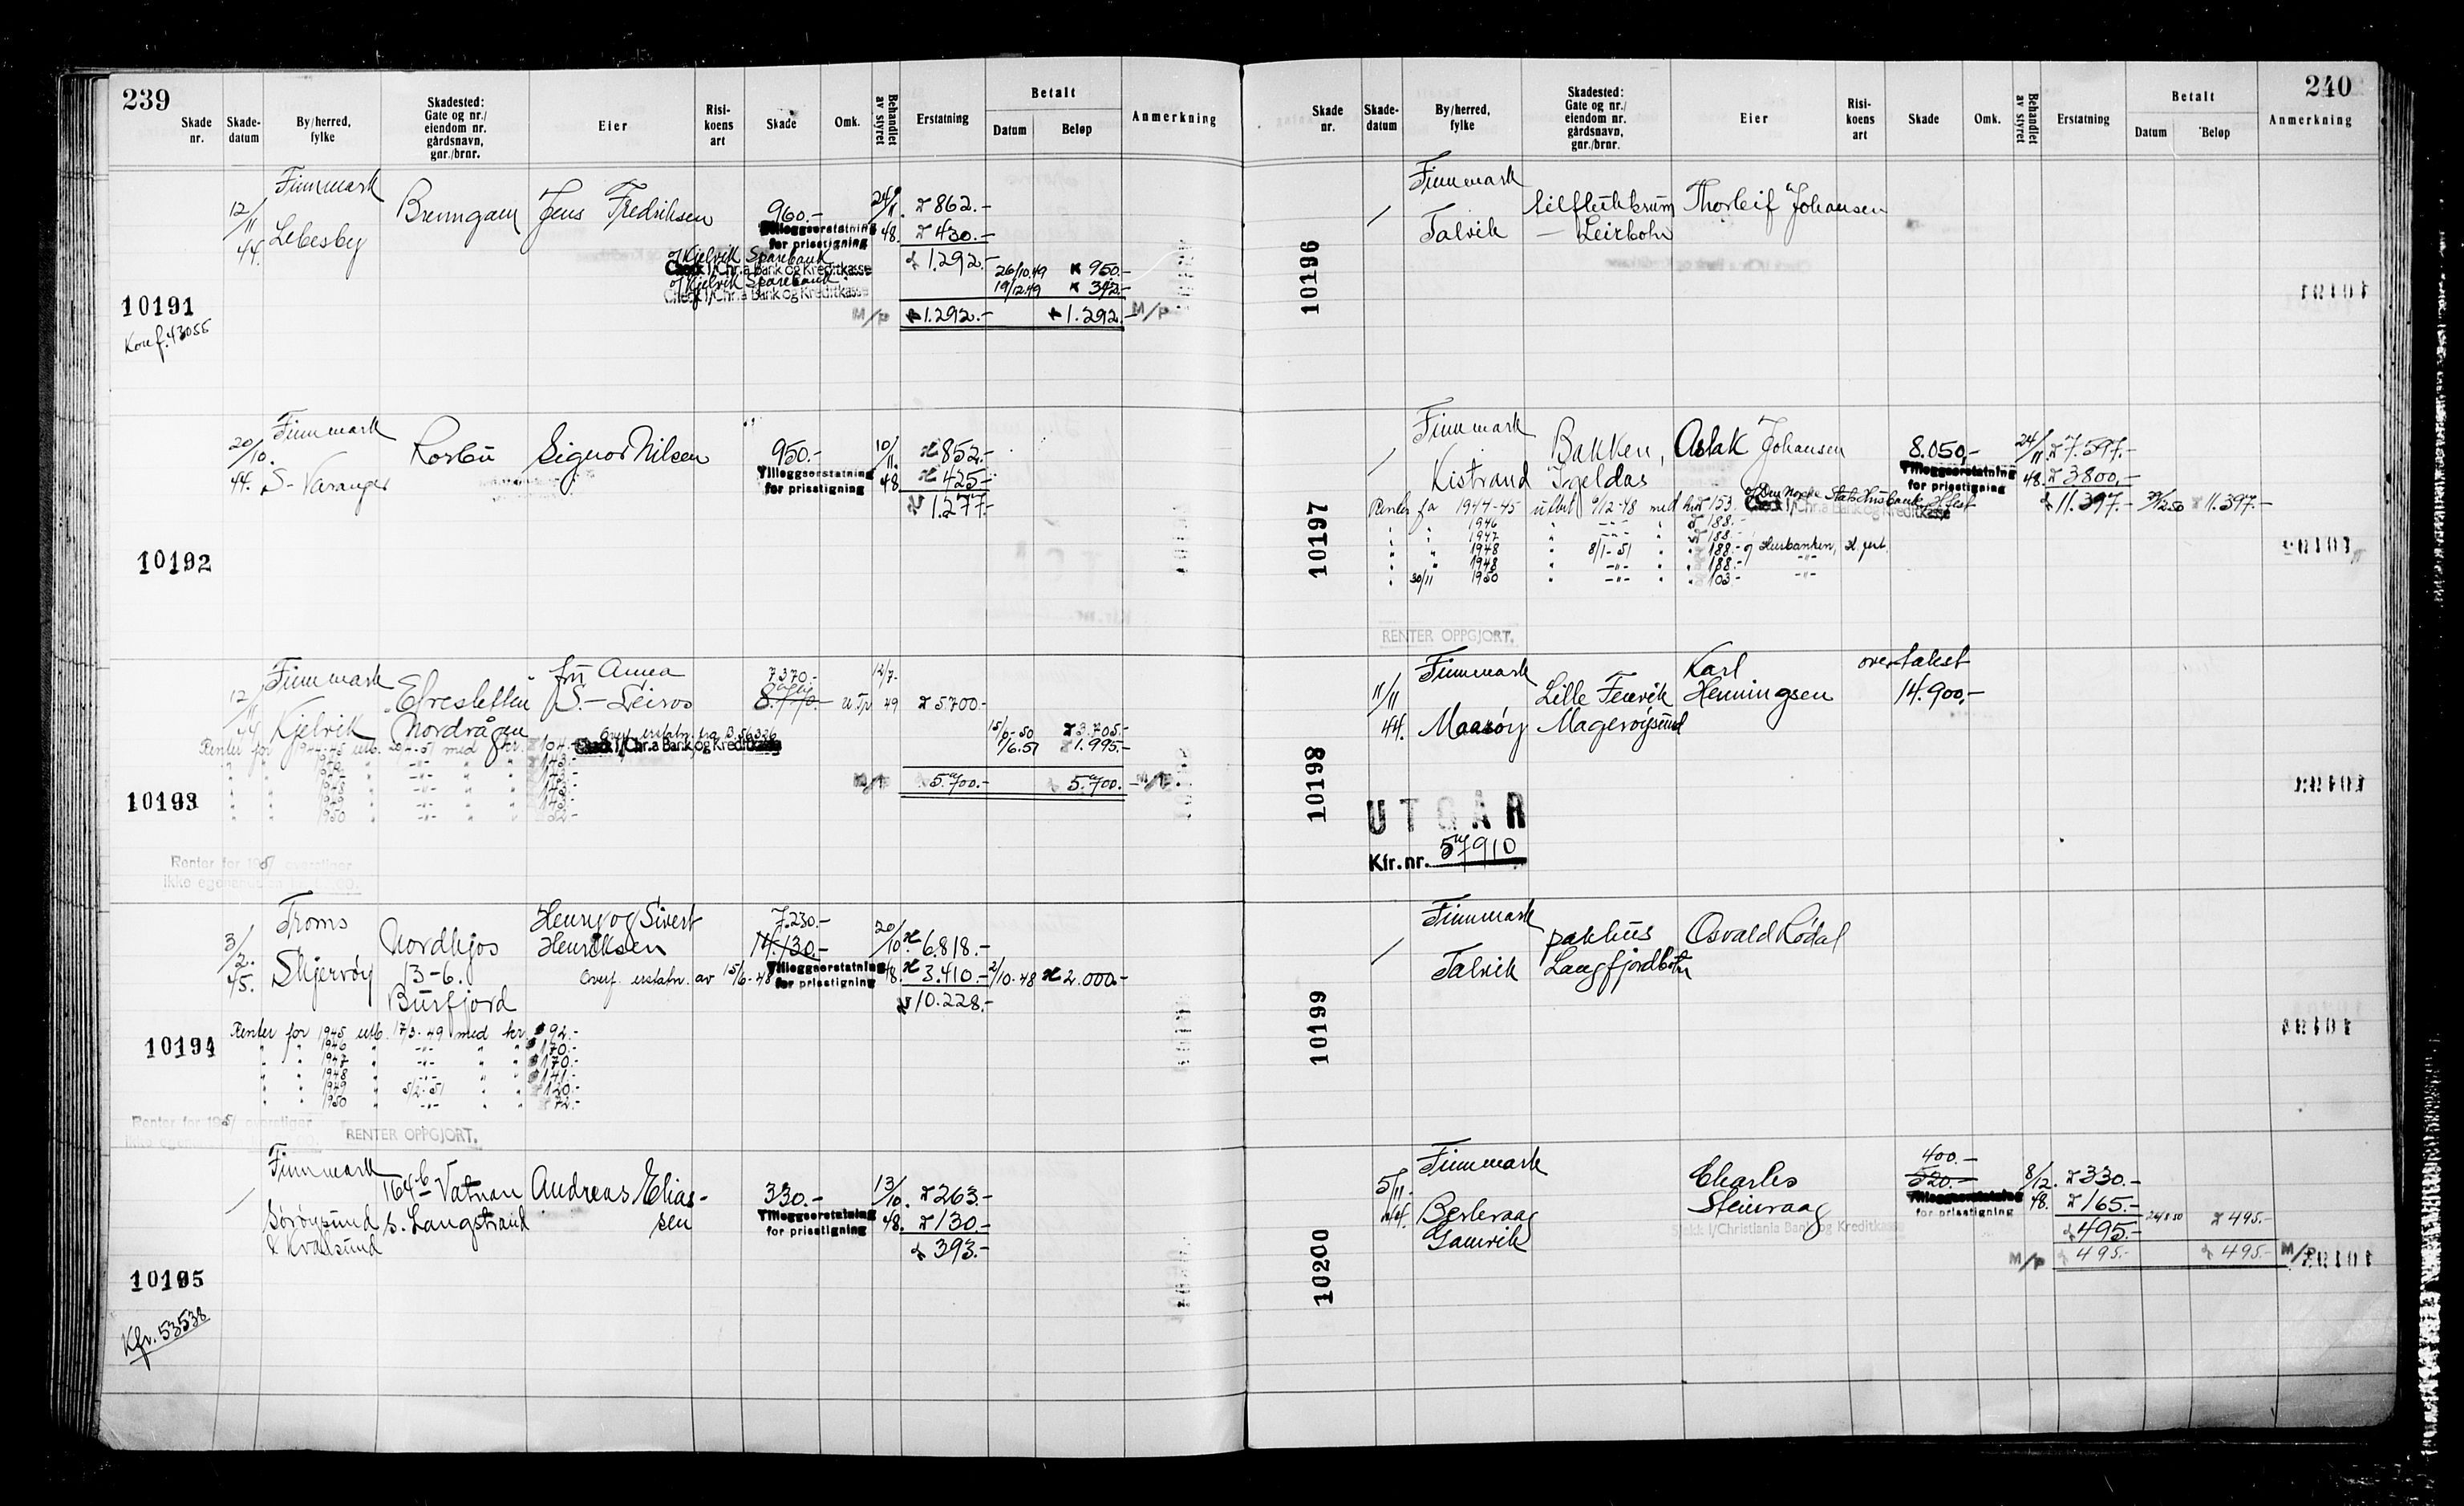 239
Skade nr.
Skade-datum
By/herred, fylke
Skadested: Gate og nr./ eiendom nr. gårdsnavn, gnr./brnr.
Eier
Risi-koens art
Skade
Omk.
Behandlet av styret
Erstatning
Betalt
Datum
Beløp
Anmerkning
10191
Konf. 43055
12/11 44.
Finnmark
Lebesby
Brenngam
Jens Fredriksen
960.-
Tilleggserstatning
for prisstigning
24/11. 48.
862.-
430.-
1.292.-
o/Kjelvik Sparebank
Check 1/Chr.a Bank og Kreditkasse
26/10.49 950.-
o/Kjelvik Sparebank
Check 1/Chr.a Bank og Kreditkasse
19/12.49 342.-
M/P 1.292.- 1.292.- M/P
10192
20/10. 44.
Finnmark
S-Varanger
Rorbu
Signor Nilsen
950.-
Tilleggserstatning
for prisstigning
10/11. 48
852.-
425.-
1.277.-
10193
12/11 44
Finnmark
Kjelvik
Nordvågen
fru Anna
S.-Leiros
7.370.-
12/7- 49
5700.-
Overf. erstatn. fra B.56326
Check 1/Chr.a Bank og Kreditkasse
15/6-50 3.705.-
1/6.51 1.995.-
Renter for 1944-45 utb. 20/4-51 med kr. 104.-
1950
5.700.- 5.700.-
Renter for 1951 overstiger
ikke egenandelen
10194
3/2. 45.
Troms
Skjervøy
Nordkjos
13-6.
Burfjord
Henry og Sivert
Henriksen
7.230.-
14.130.-
20/10. 48.
6.818.-
Overf. erstatn. av 15/6-48
Tilleggserstatning
for prisstigning
3.410.- 2/10.48 2.000.-
10.228.-
Renter for 1945 utb. 17/3-49 med kr. 92.-
" " 1946 " -"- " " 170.-
" " 1947 " -"- " " 170.-
" " 1948 " -"- " " 141.-
" " 1949 " 5/2-51 " " 120.-
" " 1950 " -"- " " 72.-
Renter for 1951 overstiger
RENTER OPPGJORT.
10195
Kfr. 53538
Finnmark
Sørøysund
& Kvalsund
164b Vatnan
s. Langstrand
Andreas Elias-
sen
330.-
Tilleggserstatning
for prisstigning
13/10. 48.
263.-
130.-
393.-
240
Skade nr.
Skade-datum
By/herred, fylke
Skadested: Gate og nr./ eiendom nr. gårdsnavn, gnr./brnr.
Eier
Risi-koens art
Skade
Omk.
Behandlet av styret
Erstatning
Betalt
Datum
Beløp
Anmerkning
10196
Finnmark
Talvik
— Leirbotn
Thorleif Johansen
10197
Finnmark
Kistrand
Bakken,
Igeldas
Aslak Johansen
8.050,-
Tilleggserstatning
for prisstigning
24/11 48.
7.597.-
3.800,-
o/Den Norske Stats Husbank, H.fest
Check 1/Chr.a Bank og Kreditkasse
11.397.- 11.397.-
Renter for 1944-45 utbet. 9/12-48 med kr. 153.-
" " 1946 " -"- " " 188.-
" " 1947 " -"- " " 188.-
" " 1948 " 8/1-51 " " 188.- o/ Husbanken, H.fest.
" " 1948 " -"- " " 188.- -"-
" 30/11 1950 " -"- " " 103.- -"-
RENTER OPPGJORT.
10198
11/11 44.
Finnmark
Maasøy
Lille Fenvik
Magerøysund
Karl
Henningsen
overtakst
14.900,-
UTGÅR
Kfr.nr. 57910
10199
Finnmark
Talvik
pakhus
Langfjordbotn
Osvald Rødal
10200
5/11. 44.
Finnmark
Berlevaag
Gamvik
Charles
Steinvaag
400.-
520.-
Tilleggserstatning
for prisstigning
8/12. 48.
330.-
165.-
495.- 495.-
Sjekk 1/Christiania Bank og Kreditkasse
M/P 495.- 495.- M/P